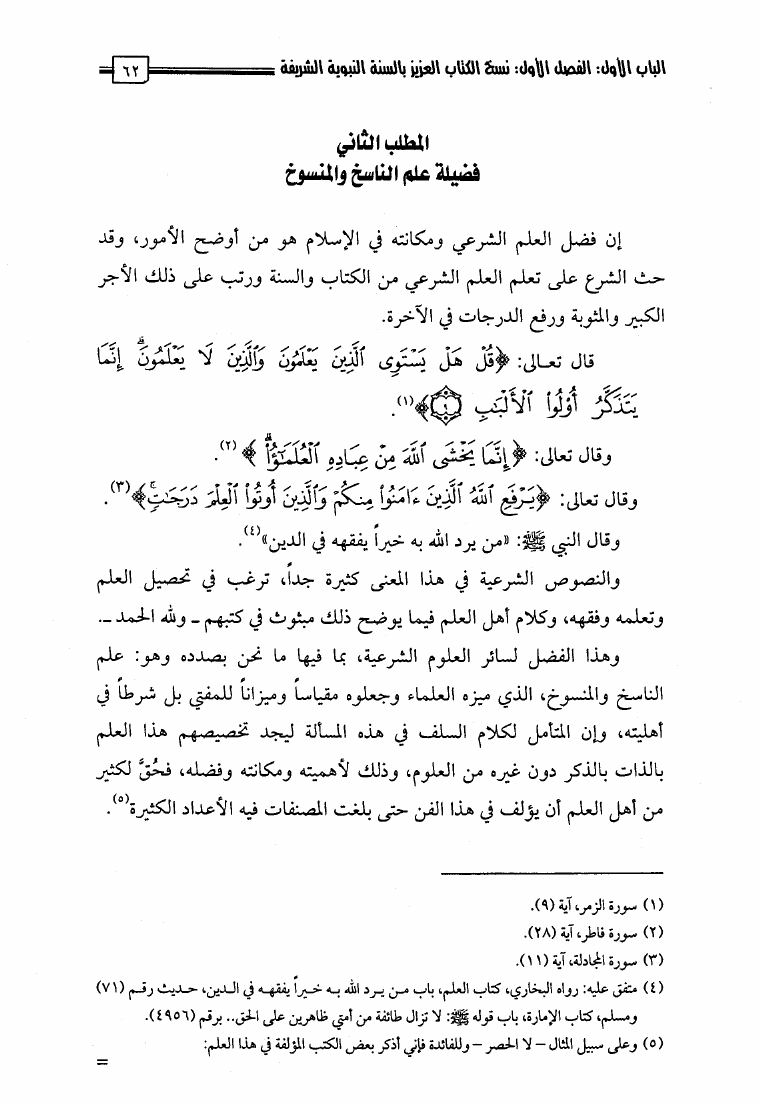 الباب الأول: الفصل الأول: نسخ الكتاب العزيز بالسنة النبوية الشريفة ٦٢
المطلب الثاني
فضيلة علم الناسخ والمنسوخ
إن فضل العلم الشرعي ومكانته في الإسلام هو من أوضح الأمور، وقد
حث الشرع على تعلم العلم الشرعي من الكتاب والسنة ورتب على ذلك الأجر
الكبير والمثوبة ورفع الدرجات في الآخرة.
قال تعالى: ﴿قُلْ هَلْ يَسْتَوِى ٱلَّذِينَ يَعْلَمُونَ وَٱلَّذِينَ لَا يَعْلَمُونَ ۗ إِنَّمَا
يَتَذَكَّرُ أُوْلُوا۟ ٱلْأَلْبَٰبِ ۝٩﴾(١).
وقال تعالى: ﴿إِنَّمَا يَخْشَى ٱللَّهَ مِنْ عِبَادِهِ ٱلْعُلَمَٰٓؤُا۟ ۗ﴾(٢).
وقال تعالى: ﴿يَرْفَعِ ٱللَّهُ ٱلَّذِينَ ءَامَنُوا۟ مِنكُمْ وَٱلَّذِينَ أُوتُوا۟ ٱلْعِلْمَ دَرَجَٰتٍ ۚ﴾(٣).
وقال النبي ﷺ: «من يرد الله به خيراً يفقهه في الدين»(٤).
والنصوص الشرعية في هذا المعنى كثيرة جداً، ترغب في تحصيل العلم
وتعلمه وفقهه، وكلام أهل العلم فيما يوضح ذلك مبثوث في كتبهم ـ ولله الحمد ـ.
وهذا الفضل لسائر العلوم الشرعية، بما فيها ما نحن بصدده وهو: علم
الناسخ والمنسوخ، الذي ميزه العلماء وجعلوه مقياساً وميزاناً للمفتي بل شرطاً في
أهليته، وإن المتأمل لكلام السلف في هذه المسألة ليجد تخصيصهم هذا العلم
بالذات بالذكر دون غيره من العلوم، وذلك لأهميته ومكانته وفضله، فحُقَّ لكثير
من أهل العلم أن يؤلف في هذا الفن حتى بلغت المصنفات فيه الأعداد الكثيرة(٥).
(١) سورة الزمر، آية (٩).
(٢) سورة فاطر، آية (٢٨).
(٣) سورة المجادلة، آية (١١).
(٤) متفق عليه: رواه البخاري، كتاب العلم، باب من يرد الله به خيراً يفقهه في الدين، حديث رقم (٧١)
ومسلم، كتاب الإمارة، باب قوله ﷺ: لا تزال طائفة من أمتي ظاهرين على الحق.. برقم (٤٩٥٦).
(٥) وعلى سبيل المثال – لا الحصر – وللفائدة فإني أذكر بعض الكتب المؤلفة في هذا العلم:
=